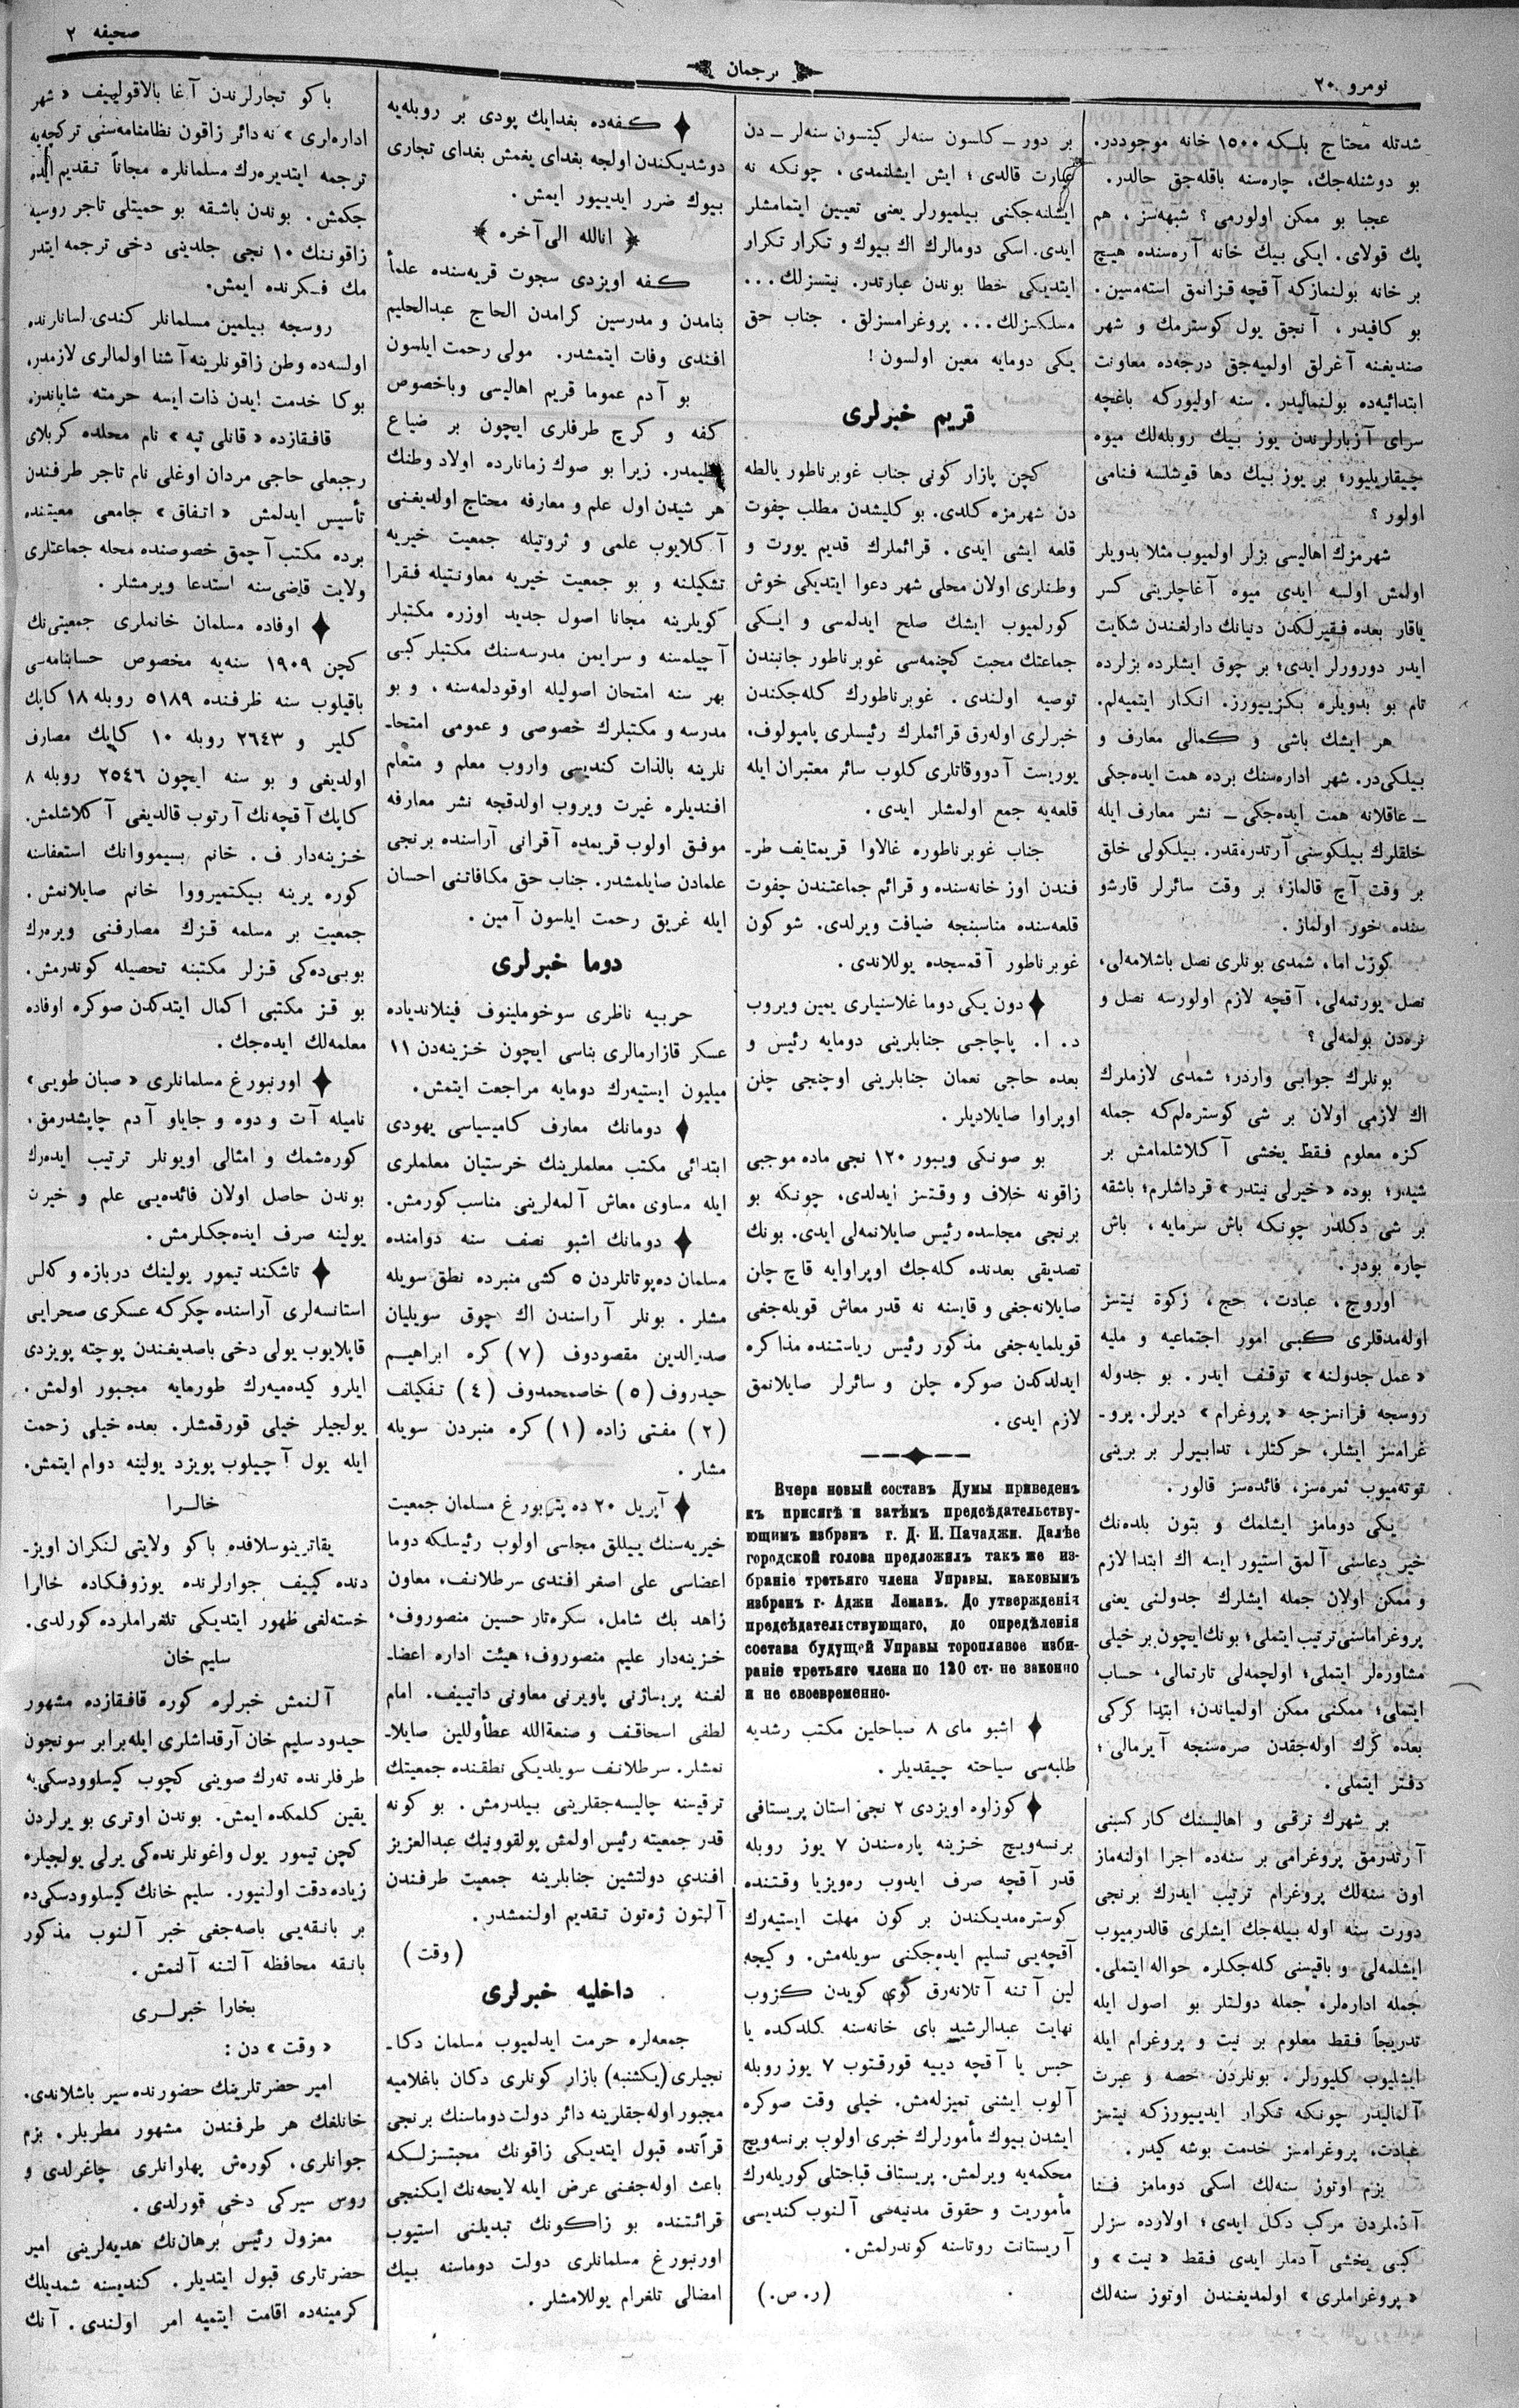 نومرو ٢٠
ترجمان
صحيفه ٢
شدتله محتاج بلكه ١٥٠٠ خانه موجوددر.
بو دوشنله‌جك، چاره‌سنه باقله‌جق حالدر.
عجبا بو ممكن اولورمى ؟ شبهه‌سز، هم
پك قولاى. ايكى بيك خانه آره‌سنده هيچ
بر خانه بولنمازكه آقچه قزانمق استه‌مسين.
بو كافيدر، آنجق يول كوسترمك و شهر
صنديغنه آغرلق اولميه‌جق درجه‌ده معاونت
ابتدائيه‌ده بولنماليدر. سنه اوليوركه باغچه
سراى آزبارلرندن يوز بيك روبله‌لك ميوه
چيقاريليور؛ بر يوز بيك دها قوشلسه فنامى
اولور ؟
شهرمزك اهاليسى بزلر اولميوب مثلا بدويلر
اولمش اولسه ايدى ميوه آغاچلرينى كسر
ياقار بعده فقيرلكدن دنيانك دارلغندن شكايت
ايدر دورورلر ايدى؛ بر چوق ايشلرده بزلرده
تام بو بدويلره بكزييورز. انكار ايتميه‌لم.
هر ايشك باشى و كمالى معارف و
بيلكى‌در. شهر اداره‌سنك برده همت ايده‌جكى
ـ عاقلانه همت ايده‌جكى ـ نشر معارف ايله
خلقلرك بيلكوسنى آرتدرمقدر. بيلكولى خلق
بر وقت آچ قالماز؛ بر وقت سائرلر قارشو
سنده خور اولماز.
كوزل اما، شمدى بونلرى نصل باشلامه‌لى،
نصل يورتمه‌لى، آقچه لازم اولورسه نصل و
نره‌دن بولمه‌لى ؟
بونلرك جوابى واردر؛ شمدى لازملرك
اك لازمى اولان بر شى كوستره‌لم‌كه جمله
كزه معلوم فقط يخشى آكلاشلمامش بر
شيدر؛ بوده «خيرلى نيتدر» قرداشلرم؛ باشقه
بر شى دكلدر چونكه باش سرمايه، باش
چاره بودر.
اوروج، عبادت، حج، زكوة نيتسز
اوله‌مدقلرى كبى امور اجتماعيه و مليه
«عمل جدولنه» توقف ايدر. بو جدوله
روسجه فرانسزجه «پروغرام» ديرلر. پرو-
غرامسز ايشلر، حركتلر، تدابيرلر بر برينى
توته‌ميوب ثمره‌سز، فائده‌سز قالور.
يكى دومامز ايشلمك و بتون بلده‌نك
خير دعاسنى آلمق استيور ايسه اك ابتدا لازم
و ممكن اولان جمله ايشلرك جدولنى يعنى
پروغراماسنى ترتيب ايتملى؛ بونك‌ايچون بر خيلى
مشاوره‌لر ايتملى؛ اولچمه‌لى تارتمالى، حساب
ايتملى؛ ممكنى ممكن اولمياندن؛ ابتدا كركى
بعده كرك اوله‌جقدن صره‌سنجه آيرمالى؛
دفتر ايتملى.
بر شهرك ترقى و اهاليسنك كار كسبنى
آرتدرمق پروغرامى بر سنه‌ده اجرا اولنه‌ماز
اون سنه‌لك پروغرام ترتيب ايدرك برنجى
دورت سنه اوله بيله‌جك ايشلرى قالدرميوب
ايشلمه‌لى و باقيسنى كله‌جكلره حواله ايتملى.
جمله اداره‌لر، جمله دولتلر بو اصول ايله
تدريجاً فقط معلوم بر نيت و پروغرام ايله
ايشليوب كليورلر. بونلردن حصه و عبرت
آلماليدر چونكه تكرار ايدييورزكه نيتسز
عبادت، پروغرامسز خدمت بوشه كيدر.
بزم اوتوز سنه‌لك اسكى دومامز فنا
آدملردن مركب دكل ايدى؛ اولارده سزلر
كبى يخشى آدملر ايدى فقط «نيت» و
«پروغراملرى» اولمديغندن اوتوز سنه‌لك
بر دور ـ كلسون سنه‌لر كيتسون سنه‌لر ـ دن
عبارت قالدى؛ ايش ايشلنمدى، چونكه نه
ايشلنه‌جكنى بيلميورلر يعنى تعيين ايتمامشلر
ايدى. اسكى دومالرك اك بيوك و تكرار تكرار
ايتديكى خطا بوندن عبارتدر. نيتسزلك...
مسلكسزلك... پروغرامسزلق. جناب حق
يكى دومايه معين اولسون !
قريم خبرلرى
كچن پازار كونى جناب غوبرناطور يالطه
دن شهرمزه كلدى. بو كليشدن مطلب چفوت
قلعه ايشى ايدى. قرائملرك قديم يورت و
وطنلرى اولان محلى شهر دعوا ايتديكى خوش
كورلميوب ايشك صلح ايدلمسى و ايكى
جماعتك محبت كچنمه‌سى غوبرناطور جانبندن
توصيه اولندى. غوبرناطورك كله‌جكندن
خبرلرى اوله‌رق قرائملرك رئيسلرى پامپولوف،
يوريست آدووقاتلرى كلوب سائر معتبران ايله
قلعه‌يه جمع اولمشلر ايدى.
جناب غوبرناطوره غالاوا قريمتايف طر-
فندن اوز خانه‌سنده و قرائم جماعتندن چفوت
قلعه‌سنده مناسبنجه ضيافت ويرلدى. شو كون
غوبرناطور آقمسجده يوللاندى.
✦ دون يكى دوما غلاسنيلرى يمين ويروب
د. ا. پاچاجى جنابلرينى دومايه رئيس و
بعده حاجى نعمان جنابلرينى اوچنجى چلن
اوپراوا صايلاديلر.
بو صونكى ويبور ١٢٠ نجى ماده موجبى
زاقونه خلاف و وقتسز ايدلدى، چونكه بو
برنجى مجلسده رئيس صايلانمه‌لى ايدى. بونك
تصديقى بعدنده كله‌جك اوپراوايه قاچ چلن
صايلانه‌جغى و قايسنه نه قدر معاش قويله‌جغى
قويلمايه‌جغى مذكور رئيس رياستنده مذاكره
ايدلدكدن صوكره چلن و سائرلر صايلانمق
لازم ايدى.
Вчера новый составъ Думы приведенъ
къ присягѣ и затѣмъ предсѣдательству-
ющимъ избранъ г. Д. И. Пачаджи. Далѣе
городской голова предложилъ так же из-
браніе третьяго члена Управы, каковымъ
избранъ г. Аджи Леманъ. До утвержденія
предсѣдательствующаго, до опредѣленія
состава будущей Управы тороплавое изби-
раніе третьяго члена по 120 ст. не законно
и не своевременно.
✦ اشبو ماى ٨ صباحلين مكتب رشديه
طلبه‌سى سياحته چيقديلر.
✦ كوزلوه اويزدى ٢ نجى استان پريستافى
برنسه‌ويچ خزينه پاره‌سندن ٧ يوز روبله
قدر آقچه صرف ايدوب ره‌ويزيا وقتنده
كوستره‌مديكندن بر كون مهلت ايستيه‌رك
آقچه‌يى تسليم ايده‌جكنى سويله‌مش. و كيجه
لين آتنه آتلانه‌رق كوى كويدن كزوب
نهايت عبدالرشيد باى خانه‌سنه كلدكده يا
حبس يا آقچه دييه قورقتوب ٧ يوز روبله
آلوب ايشنى تميزله‌مش. خيلى وقت صوكره
ايشدن بيوك مأمورلرك خبرى اولوب برنسه‌ويچ
محكمه‌يه ويرلمش. پريستاف قباحتلى كوريله‌رك
مأموريت و حقوق مدنيه‌سى آلنوب كنديسى
آريستانت روتاسنه كوندرلمش.
(ر. ص.)
✦ كفه‌ده بغدايك پودى بر روبله‌يه
دوشديكندن اولجه بغداى يغمش بغداى تجارى
بيوك ضرر ايدييور ايمش.
﴿ انالله الى آخره ﴾
كفه اويزدى سجوت قريه‌سنده علماً
بنامدن و مدرسين كرامدن الحاج عبدالحليم
افندى وفات ايتمشدر. مولى رحمت ايلسون
بو آدم عموما قريم اهاليسى وباخصوص
كفه و كرچ طرفلرى ايچون بر ضياع
عظيمدر. زيرا بو صوك زمانلرده اولاد وطنك
هر شيدن اول علم و معارفه محتاج اولديغنى
آكلايوب علمى و ثروتيله جمعيت خيريه
تشكيلنه و بو جمعيت خيريه معاونتيله فقرا
كويلرينه مجانا اصول جديد اوزره مكتبلر
آچيلمسنه و سرايمن مدرسه‌سنك مكتبلر كبى
بهر سنه امتحان اصوليله اوقودلمه‌سنه، و بو
مدرسه و مكتبلرك خصوصى و عمومى امتحا-
نلرينه بالذات كنديسى واروب معلم و متعلم
افنديلره غيرت ويروب اولدقچه نشر معارفه
موفق اولوب قريمده آقرانى آراسنده برنجى
علمادن صايلمشدر. جناب حق مكافاتنى احسان
ايله غريق رحمت ايلسون آمين.
دوما خبرلرى
حربيه ناظرى سوخوملينوف فينلانديا‌ده
عسكر قازارمالرى بناسى ايچون خزينه‌دن ١١
ميليون ايستيه‌رك دومايه مراجعت ايتمش.
✦ دومانك معارف كاميسياسى يهودى
ابتدائى مكتب معلملرينك خرستيان معلملرى
ايله مساوى معاش آلمه‌لرينى مناسب كورمش.
✦ دومانك اشبو نصف سنه دوامنده
مسلمان ده‌پوتاتلردن ٥ كشى منبرده نطق سويله
مشلر. بونلر آراسندن اك چوق سويليان
صدرالدين مقصودوف (٧) كره ابراهيم
حيدروف (٥) خاصمحمدوف (٤) تفكيلف
(٢) مفتى زاده (١) كره منبردن سويله
مشلر.
✦ آپريل ٢٠ ده پتربورغ مسلمان جمعيت
خيريه‌سنك ييللق مجلسى اولوب رئيسلكه دوما
اعضاسى على اصغر افندى سرطلانف، معاون
زاهد بك شامل، سكره‌تار حسين منصوروف،
خزينه‌دار عليم منصوروف؛ هيئت اداره اعضا-
لغنه پريساژنى پاويرنى معاونى داتييف، امام
لطفى اسحاقف و صنعة‌الله عطأوللين صايلا-
نمشلر. سرطلانف سويلديكى نطقنده جمعيتك
ترقيسنه چاليسه‌جقلرينى بيلدرمش. بو كونه
قدر جمعيته رئيس اولمش پولقوونيك عبدالعزيز
افندى دولتشين جنابلرينه جمعيت طرفندن
آلتون ژه‌تون تقديم اولنمشدر.
(وقت)
داخليه خبرلرى
جمعه‌لره حرمت ايدلميوب مسلمان دكا-
نجيلرى (يكشنبه) بازار كونلرى دكان باغلاميه
مجبور اوله‌جقلرينه دائر دولت دوماسنك برنجى
قرآئده قبول ايتديكى زاقونك محبتسزلكه
باعث اوله‌جغنى عرض ايله لايحه‌نك ايكنجى
قرائتنده بو زاكونك تبديلنى استيوب
اورنبورغ مسلمانلرى دولت دوماسنه بيك
امضالى تلغرام يوللامشلر.
باكو تجارلرندن آغا بالاقولييف «شهر
اداره‌لرى» نه دائر زاقون نظامنامه‌سنى تركچه‌يه
ترجمه ايتديره‌رك مسلمانلره مجاناً تقديم ايده
جكمش. بوندن باشقه بو حميتلى تاجر روسيه
زاقوننك ١٠ نجى جلدينى دخى ترجمه ايتدر
مك فكرنده ايمش.
روسجه بيلمين مسلمانلر كندى لسانلرنده
اولسه‌ده وطن زاقونلرينه آشنا اولمالرى لازمدر.
بوكا خدمت ايدن ذات ايسه حرمته شاياندر.
قافقازده «قانلى تپه» نام محلده كربلاى
رجبعلى حاجى مردان اوغلى نام تاجر طرفندن
تأسيس ايدلمش «اتفاق» جامعى معيتنده
برده مكتب آچمق خصوصنده محله جماعتلرى
ولايت قاضى‌سنه استدعا ويرمشلر.
✦ اوفاده مسلمان خانملرى جمعيتى‌نك
كچن ١٩٠٩ سنه‌يه مخصوص حسابنامه‌سى
باقيلوب سنه ظرفنده ٥١٨٩ روبله ١٨ كاپك
كلير و ٢٦٤٣ روبله ١٠ كاپك مصارف
اولديغى و بو سنه ايچون ٢٥٤٦ روبله ٨
كاپك آقچه‌نك آرتوب قالديغى آكلاشلمش.
خزينه‌دار ف. خانم بسيمووانك استعفاسنه
كوره يرينه بيكتميرووا خانم صايلانمش.
جمعيت بر مسلمه قزك مصارفنى ويره‌رك
بوبى‌ده‌كى قزلر مكتبنه تحصيله كوندرمش.
بو قز مكتبى اكمال ايتدكدن صوكره اوفاده
معلمه‌لك ايده‌جك.
✦ اورنبورغ مسلمانلرى «صبان طويى»
ناميله آت و دوه و جاياو آدم چاپشدرمق،
كوره‌شمك و امثالى اويونلر ترتيب ايده‌رك
بوندن حاصل اولان فائده‌يى علم و خيرت
يولينه صرف ايده‌جكلرمش.
✦ تاشكند تيمور يولينك دربازه و كه‌لس
استانسه‌لرى آراسنده چكركه عسكرى صحرايى
قاپلايوب يولى دخى باصديغندن پوچته پويزدى
ايلرو كيده‌ميه‌رك طورمايه مجبور اولمش.
يولجيلر خيلى قورقمشلر. بعده خيلى زحمت
ايله يول آچيلوب پويزد يولينه دوام ايتمش.
خالرا
يقاترينوسلافده باكو ولايتى لنكران اويز-
دنده كييف جوارلرنده يوزوفكاده خالرا
خسته‌لغى ظهور ايتديكى تلغراملرده كورلدى.
سليم خان
آلنمش خبرلره كوره قافقازده مشهور
حيدود سليم خان آرقداشلرى ايله برابر سونجون
طرفلرنده ته‌رك صوينى كچوب كيسلوودسكى‌يه
يقين كلمكده ايمش. بوندن اوترى بو يرلردن
كچن تيمور يول واغونلرنده‌كى يرلى يولجيلره
زياده دقت اولنيور. سليم خانك كيسلوودسكى‌ده
بر بانقه‌يى باصه‌جغى خبر آلنوب مذكور
بانقه محافظه آلتنه آلنمش.
بخارا خبرلرى
«وقت» دن :
امير حضرتلرينك حضورنده سير باشلاندى.
خانلغك هر طرفندن مشهور مطربلر، بزم
جوانلرى، كوره‌ش پهلوانلرى چاغرلدى و
روس سيركى دخى قورلدى.
معزول رئيس برهان‌نك هديه‌لرينى امير
حضرتلرى قبول ايتديلر. كنديسنه شمديلك
كرمينه‌ده اقامت ايتميه امر اولندى. آنك